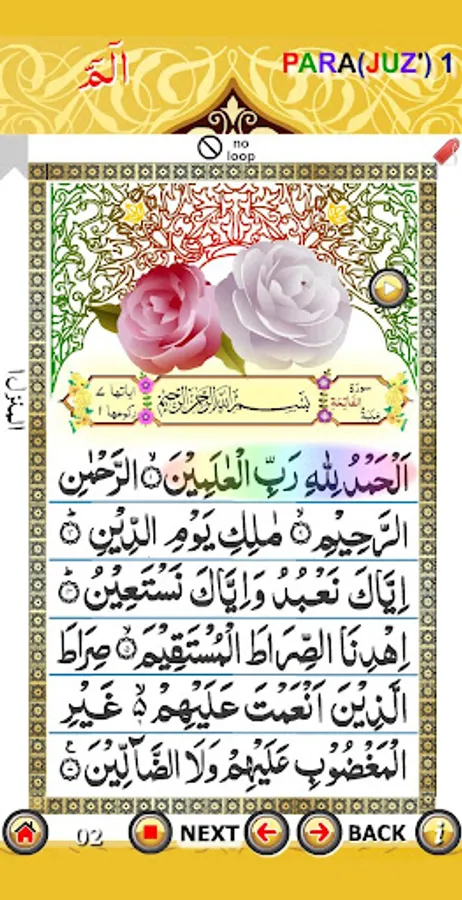 الٓمّٓ
PARA(JUZ') 1
no
loop
سورة
الفاتحة
مكية
بسم الله الرحمن الرحيم
اياتها ٧
ركوعها ١
اَلْحَمْدُ لِلّٰهِ رَبِّ الْعٰلَمِيْنَ ۙ﴿١﴾ الرَّحْمٰنِ
الرَّحِيْمِ ۙ﴿٢﴾ مٰلِكِ يَوْمِ الدِّيْنِ ؕ﴿٣﴾
اِيَّاكَ نَعْبُدُ وَاِيَّاكَ نَسْتَعِيْنُ ؕ﴿٤﴾
اِهْدِنَا الصِّرَاطَ الْمُسْتَقِيْمَ ۙ﴿٥﴾ صِرَاطَ
الَّذِيْنَ اَنْعَمْتَ عَلَيْهِمْ ۙ۬ غَيْرِ
الْمَغْضُوْبِ عَلَيْهِمْ وَلَا الضَّآلِّيْنَ ۧ﴿٧﴾
المنزل ١
02
NEXT
BACK
i